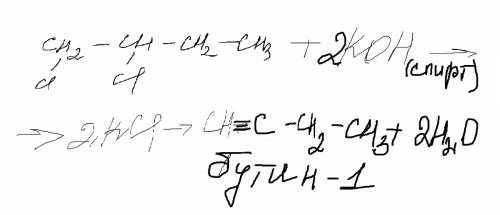 CH₂ – CH – CH₂ – CH₃ + 2KOH (спирт) →
Cl Cl
→ 2KCl → CH≡C – CH₂ – CH₃ + 2H₂O
бутин-1